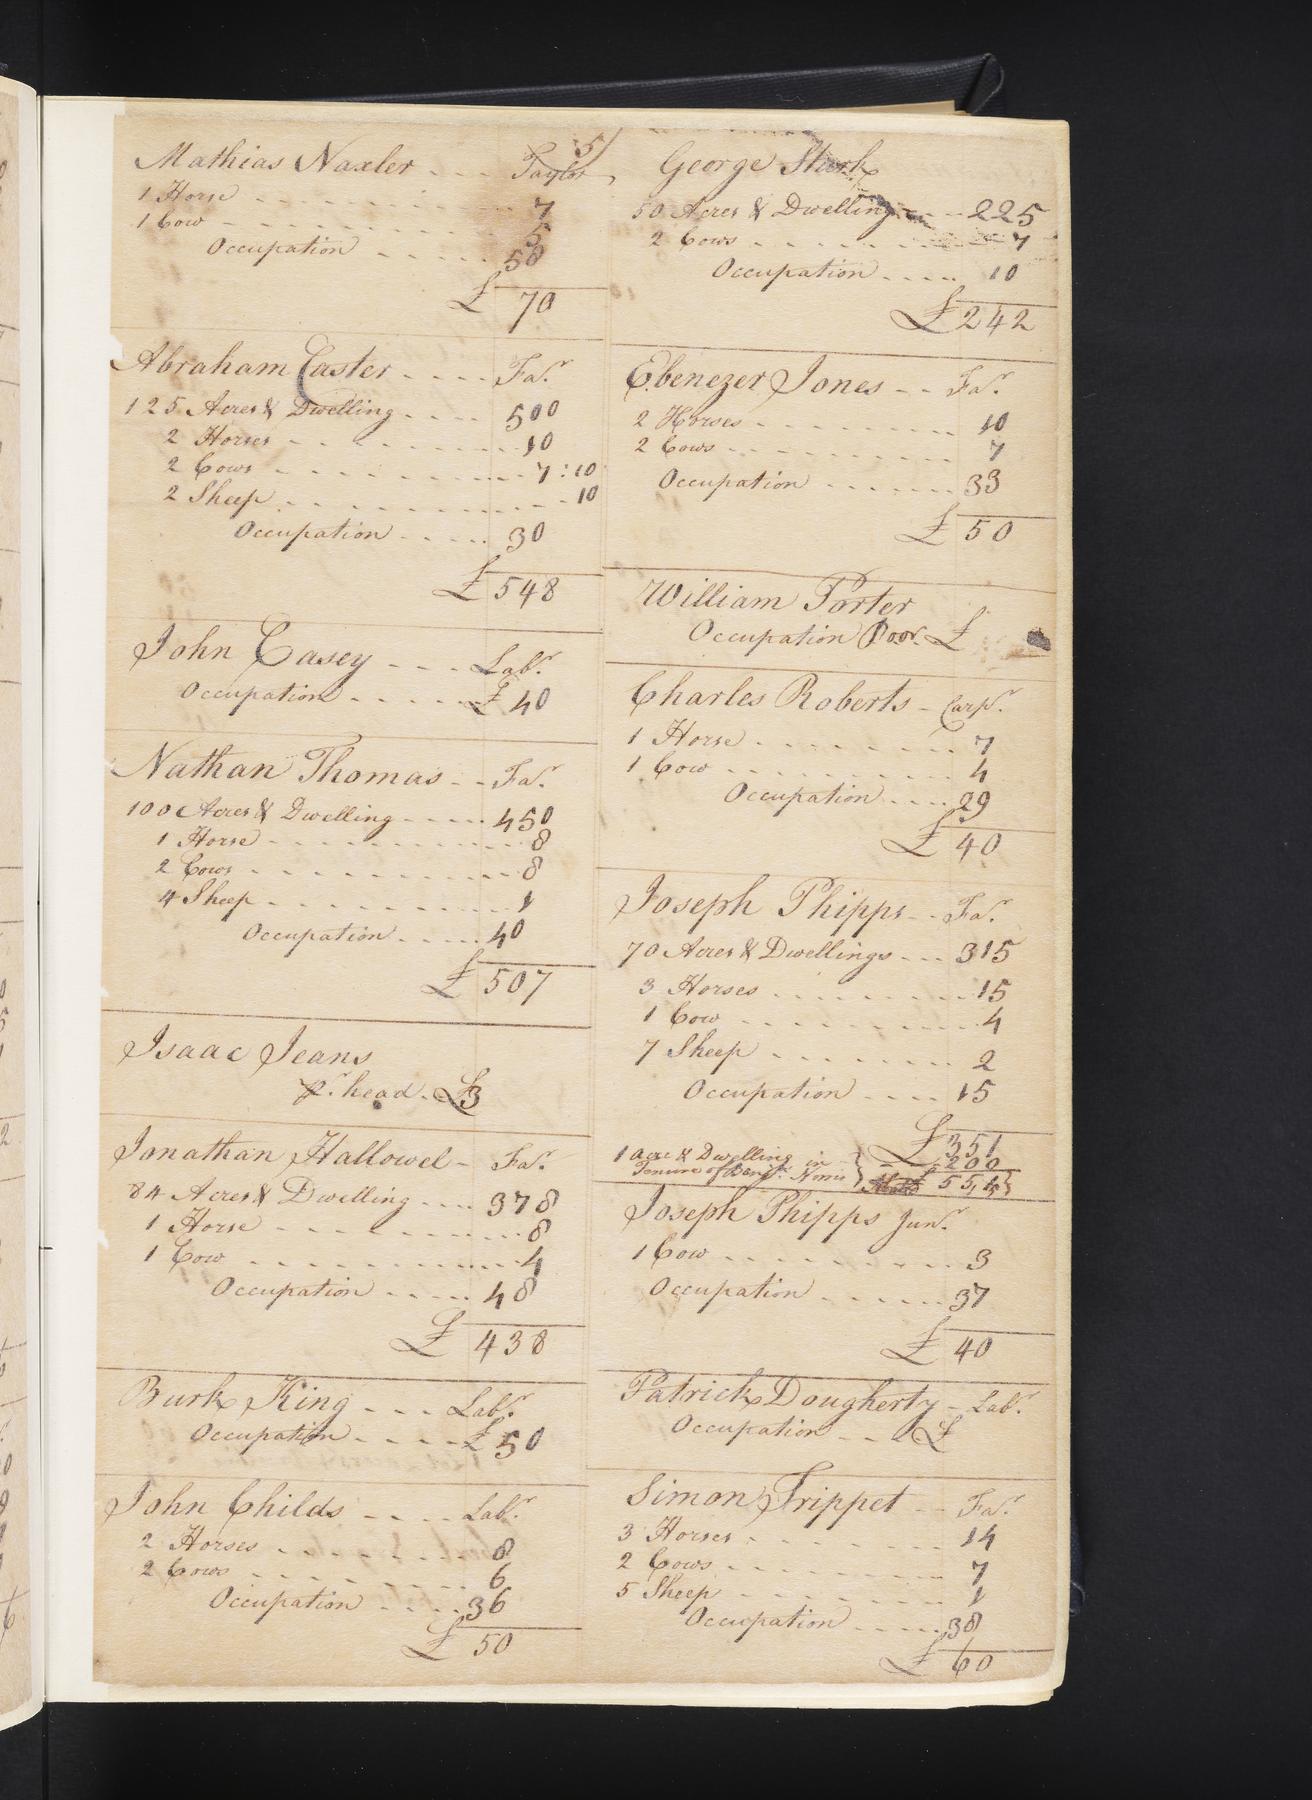 5
Mathias Naxler - - - Taylor
1 Horse - - - 7
1 Cow - - - 5
Occupation - - - 58
£ 70
Abraham Custer - - - Far.
125 Acres & Dwelling - - - 500
2 Horses - - - 10
2 Cows - - - 7:10
2 Sheep - - - 10
Occupation - - - 30
£ 548
John Casey - - - Labr.
Occupation - - - £ 40
Nathan Thomas - - Far.
100 Acres & Dwelling - - - 450
1 Horse - - - 8
2 Cows - - - 8
4 Sheep - - - 1
Occupation - - - 40
£ 507
Isaac Jeans
pr. head - £3
Jonathan Hallowel - Far.
84 Acres & Dwelling - - - 378
1 Horse - - - 8
1 Cow - - - 4
Occupation - - - 48
£ 438
Burk King - - - Labr.
Occupation - - - £ 50
John Childs - - - Labr.
2 Horses - - - 8
2 Cows - - - 6
Occupation - - - 36
£ 50
George Sturk
50 Acres & Dwelling - - - 225
2 Cows - - - 7
Occupation - - - 10
£ 242
Ebenezer Jones - - Far.
2 Horses - - - 10
2 Cows - - - 7
Occupation - - - 33
£ 50
William Porter
Occupation Poor. £
Charles Roberts - Carpr.
1 Horse - - - 7
1 Cow - - - 4
Occupation - - - 29
£ 40
Joseph Phipps - - Far.
70 Acres & Dwellings - - - 315
3 Horses - - - 15
1 Cow - - - 4
7 Sheep - - - 2
Occupation - - - 15
£ 351
1 acre & Dwelling in 200
Tenure of Benjn. Norris 551
Joseph Phipps Junr.
1 Cow - - - 3
Occupation - - - 37
£ 40
Patrick Dougherty - Labr.
Occupation - - £
Simon Trippet - - Far.
3 Horses - - - 14
2 Cows - - - 7
5 Sheep - - - 1
Occupation - - - 38
£ 60